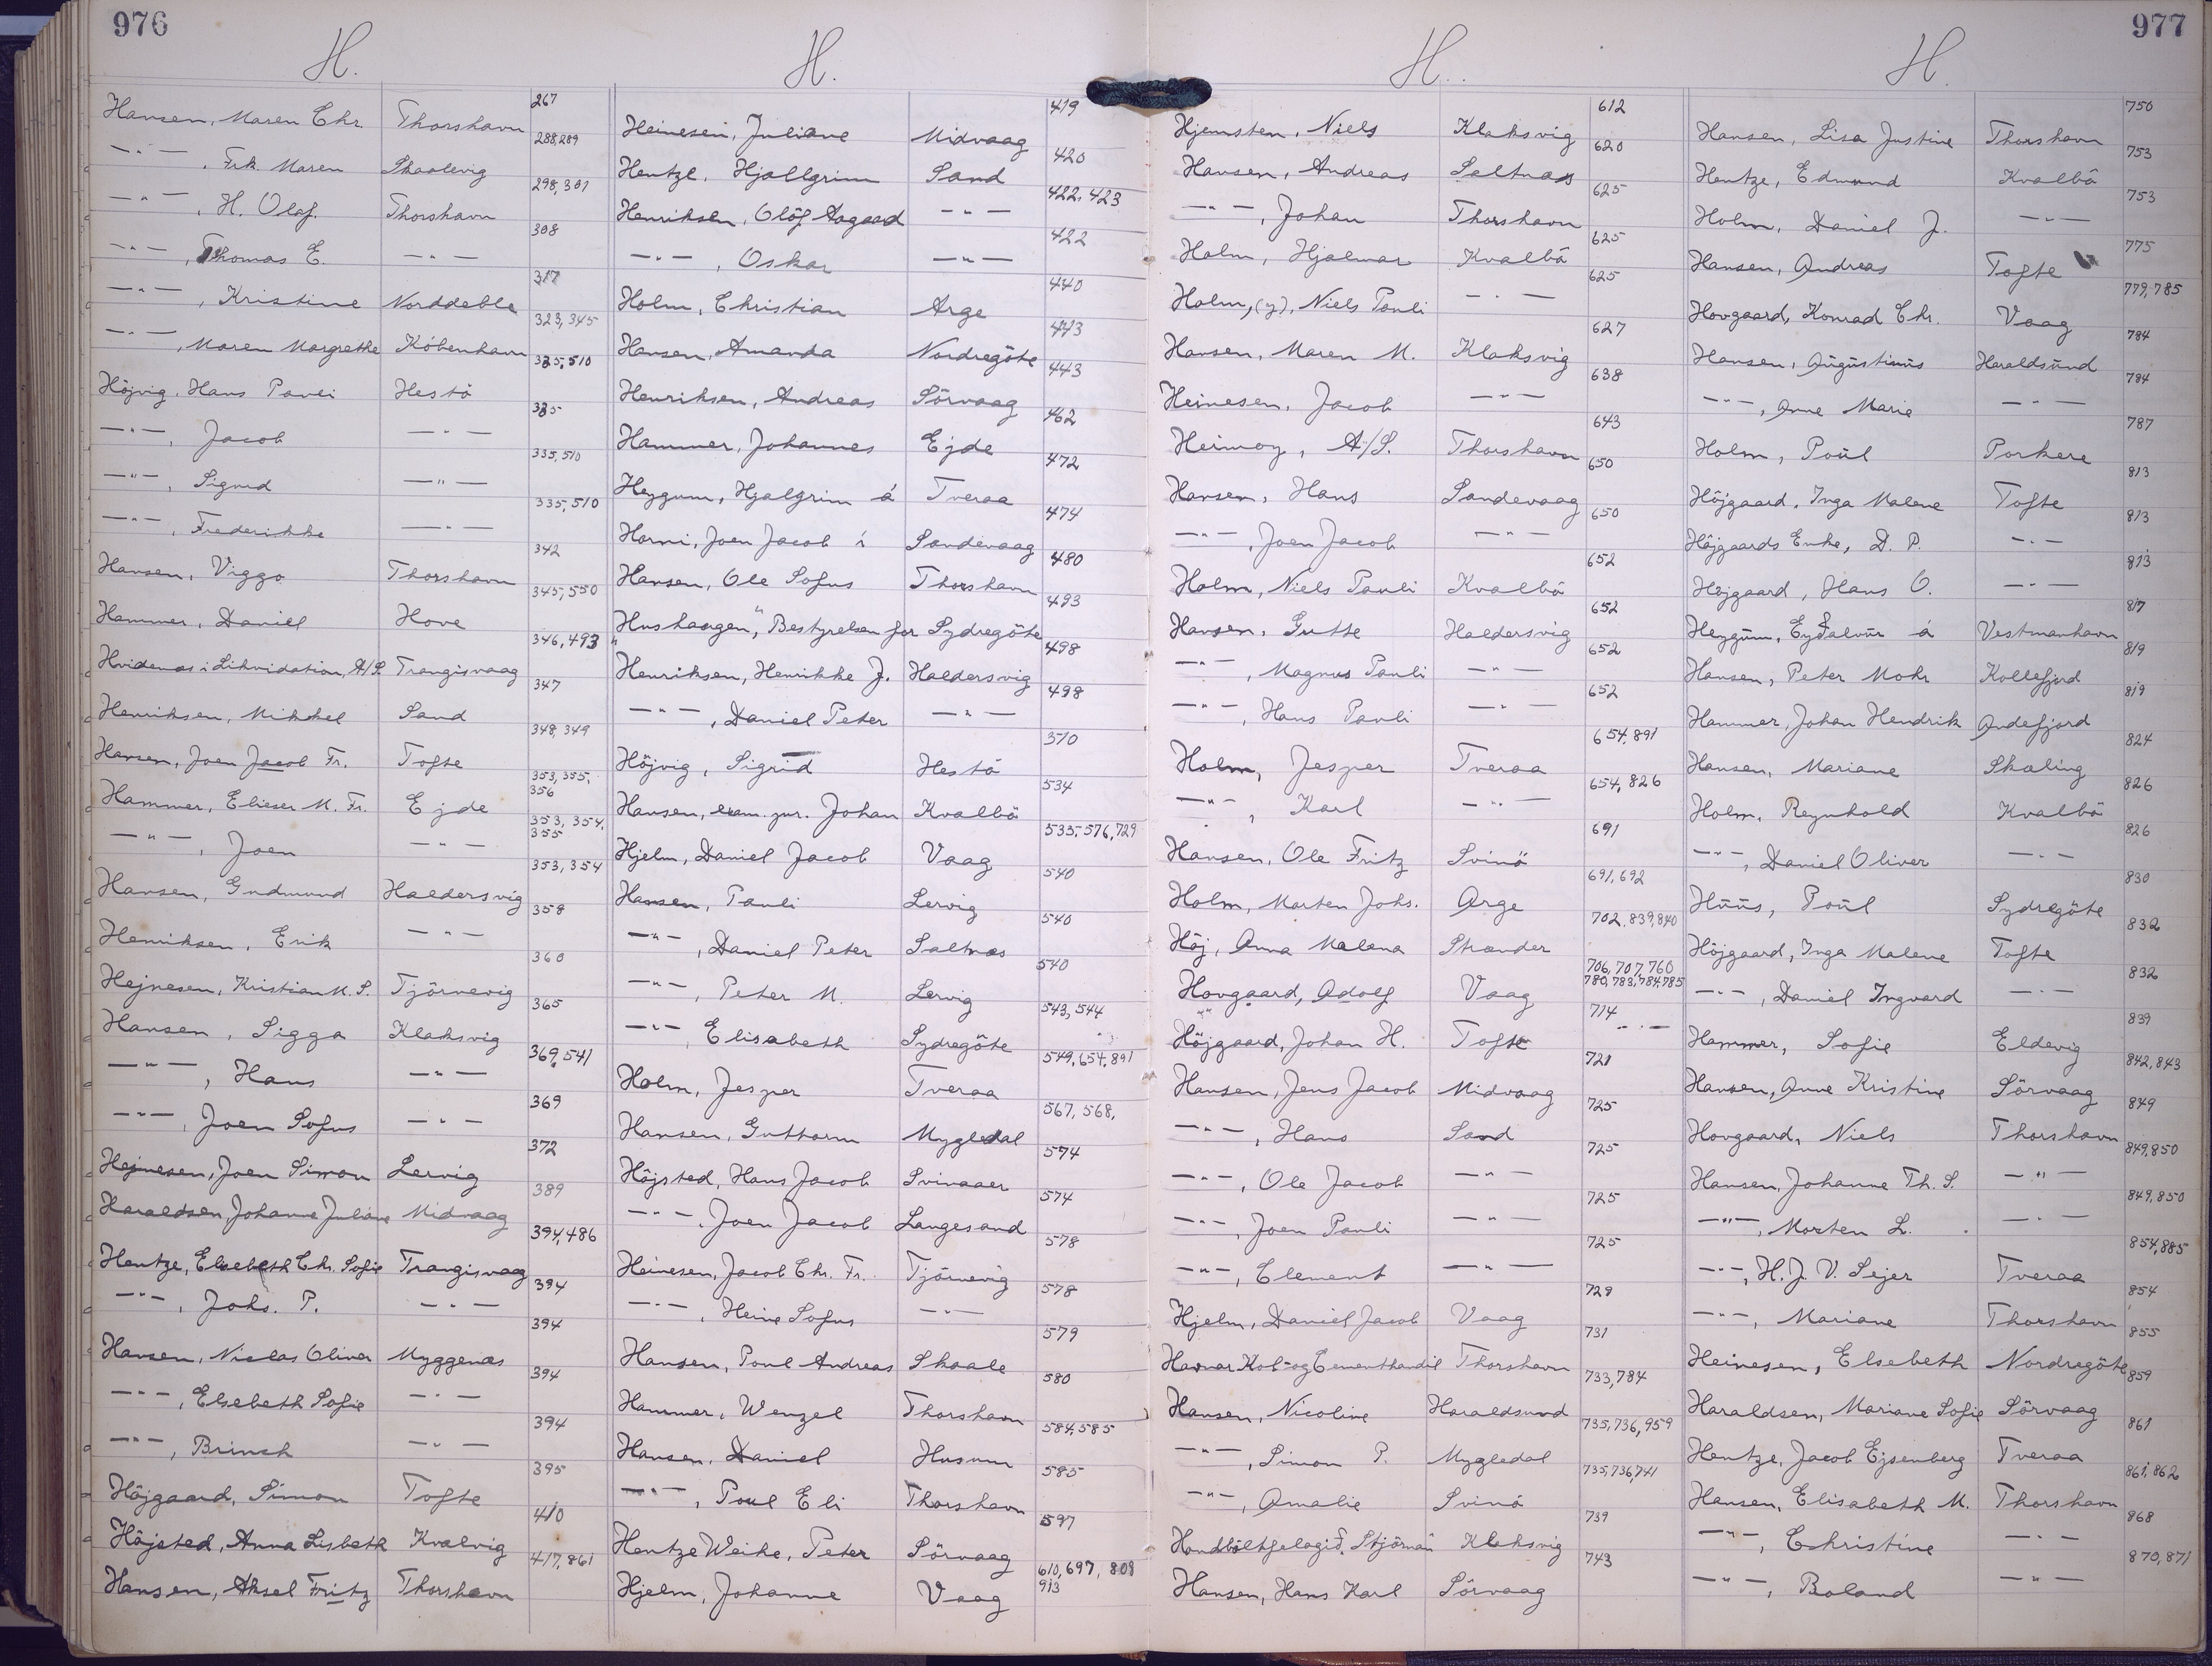 976
H.
H.
Hansen, Maren Chr. Thorshavn 267
—"—, Frk. Maren Skaalevig 288,289
—"—, H. Olaf. Thorshavn 298,301
—"—, Thomas E. —"— 308
—"—, Kristine Norddeble 317
—"—, Maren Margrethe København 323,345
Höjvig, Hans Pauli Hestö 335,510
—"—, Jacob —"— 335
—"—, Sigurd —"— 335,510
—"—, Frederikke —"— 335,510
Hansen, Viggo Thorshavn 342
Hammer, Daniel Hove 345,550
Hvidenæs i Likvidation, A/S. Trangisvaag 346,493
Henriksen, Mikkel Sand 347
Hansen, Joen Jacob Fr. Tofte 348,349
Hammer, Elieser M. Fr. Ejde 353,355,356
—"—, Joen —"— 353,354,355
Hansen, Gudmund Haldersvig 353,354
Henriksen, Erik —"— 358
Hejnesen, Kristian M. S. Tjörnevig 360
Hansen, Sigga Klaksvig 365
—"—, Hans —"— 369,541
—"—, Joen Sofus —"— 369
Hejnesen, Joen Simon Lervig 372
Haraldsen, Johanne Juliane Midvaag 389
Hentze, Elsebeth Chr. Sofie Trangisvaag 394,486
—"—, Johs. P. —"— 394
Hansen, Niclas Oliver Myggenæs 394
—"—, Elsebeth Sofie —"— 394
—"—, Brinch —"— 394
Höjgaard, Simon Tofte 395
Höjsted, Anna Lisbeth Kvalvig 410
Hansen, Aksel Fritz Thorshavn 417,861
Heinesen, Juliane Midvaag 419
Hentze, Hjallgrim Sand 420
Henriksen, Olöf Aagaard —"— 422,423
—"—, Oskar —"— 422
Holm, Christian Arge 440
Hansen, Amanda Nordregöte 443
Henriksen, Andreas Sörvaag 443
Hammer, Johannes Ejde 462
Heygum, Hjalgrim á Tveraa 472
Horni, Joen Jacob í Sandevaag 474
Hansen, Ole Sofus Thorshavn 480
"Hushaugen", Bestyrelsen for Sydregöte 493
Henriksen, Henrikke J. Haldersvig 498
—"—, Daniel Peter —"— 498
Höjvig, Sigrid Hestö 510
Hansen, exam. jur. Johan Kvalbö 534
Hjelm, Daniel Jacob Vaag 535,576,729
Hansen, Pauli Lervig 540
—"—, Daniel Peter Saltnæs 540
—"—, Peter M. Lervig 540
—"— Elisabeth Sydregöte 543,544
Holm, Jesper Tveraa 549,654,891
Hansen, Guttorm Mygledal 567,568,
Höjsted, Hans Jacob Svinaaer 574
—"—, Joen Jacob Langesand 574
Heinesen, Jacob Chr. Fr. Tjörnevig 578
—"—, Heine Sofus —"— 578
Hansen, Poul Andreas Skaale 579
Hammer, Wenzel Thorshavn 580
Hansen, Daniel Husum 584,585
—"—, Poul Eli Thorshavn 585
Hentze Weihe, Peter Sörvaag 597
Hjelm, Johanne Vaag 610,697,808 913
977
H.
H.
Hjemsten, Niels Klaksvig 612
Hansen, Andreas Saltnæs 620
—"—, Johan Thorshavn 625
Holm, Hjalmar Kvalbö 625
Holm, (y), Niels Pauli —"— 625
Hansen, Maren M. Klaksvig 627
Heinesen, Jacob —"— 638
Heimoy, A/S. Thorshavn 643
Hansen, Hans Sandevaag 650
—"—, Joen Jacob —"— 650
Holm, Niels Pauli Kvalbö 652
Hansen, Gutte Haldersvig 652
—"—, Magnus Pauli —"— 652
—"—, Hans Pauli —"— 652
Holm, Jesper Tveraa 654,891
—"—, Karl —"— 654,826
Hansen, Ole Fritz Svinö 691
Holm, Morten Johs. Arge 691,692
Höj, Anna Malena Strænder 702,839,840
Hovgaard, Adolf Vaag 706,707,760 780,783,784,785
Höjgaard, Johan H. Tofte 714
Hansen, Jens Jacob Midvaag 721
—"—, Hans Sand 725
—"—, Ole Jacob —"— 725
—"—, Joen Pauli —"— 725
—"—, Clement —"— 725
Hjelm, Daniel Jacob Vaag 729
Havnar Kol- og Cementhandil Thorshavn 731
Hansen, Nicoline Haraldsund 733,784
—"—, Simon P. Mygledal 735,736,959
—"—, Amalie Svinö 735,736,741
Hondbóltfelagið Stjörnan Klaksvig 739
Hansen, Hans Karl Sörvaag 743
Hansen, Lisa Justine Thorshavn 750
Hentze, Edmund Kvalbö 753
Holm, Daniel J. —"— 753
Hansen, Andreas Tofte 775
Hovgaard, Konrad Chr. Vaag 779,785
Hansen, Augustinus Haraldsund 784
—"—, Anne Marie —"— 784
Holm, Poul Porkere 787
Höjgaard, Inga Malene Tofte 813
Höjgaards Enke, D. P. —"— 813
Höjgaard, Hans O. —"— 813
Heygum, Eyðálvur á Vestmanhavn 817
Hansen, Peter Mohr Kollefjord 819
Hammer, Johan Hendrik Andefjord 819
Hansen, Mariane Skæling 824
Holm, Reynhold Kvalbö 826
—"—, Daniel Oliver —"— 826
Huus, Poul Sydregöte 830
Höjgaard, Inga Malene Tofte 832
—"—, Daniel Ingvard —"— 832
Hammer, Sofie Eldevig 839
Hansen, Anne Kristine Sörvaag 842,843
Hovgaard, Niels Thorshavn 849
Hansen, Johanne Th. S. —"— 849,850
—"—, Morten L. —"— 849,850
—"—, H. J. V. Sejer Tveraa 854,885
—"—, Mariane Thorshavn 854
Heinesen, Elsebeth Nordregöte 855
Haraldsen, Mariane Sofie Sörvaag 859
Hentze, Jacob Ejsenberg Tveraa 861
Hansen, Elisabeth M. Thorshavn 861,862
—"—, Christine —"— 868
—"—, Boland —"— 870,871